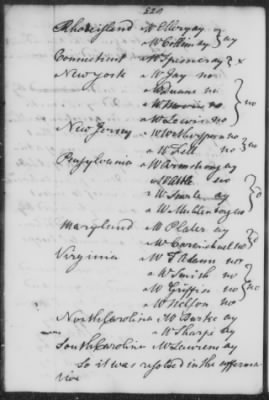 Rhode island Mr Ellery ay } ay
Mr Collins ay
Connecticut Mr Spencer ay } x
New York Mr Jay no
Mr Duane no } no
Mr Morris no
Mr Lewis no
New Jersey Mr Witherspoon no } no
Mr Fell no
Pensylvania Mr Armstrong ay
Mr Atlee no
Mr Searle ay
Mr Muhlenberg no
Maryland Mr Plater ay
Mr Carmichael no
Virginia Mr T Adams no
Mr Smith no
Mr Griffin no } no
Mr Nelson no
North Carolina Mr Burke ay
Mr Sharpe ay
South Carolina Mr Laurens ay
So it was resolved in the affirma
tive